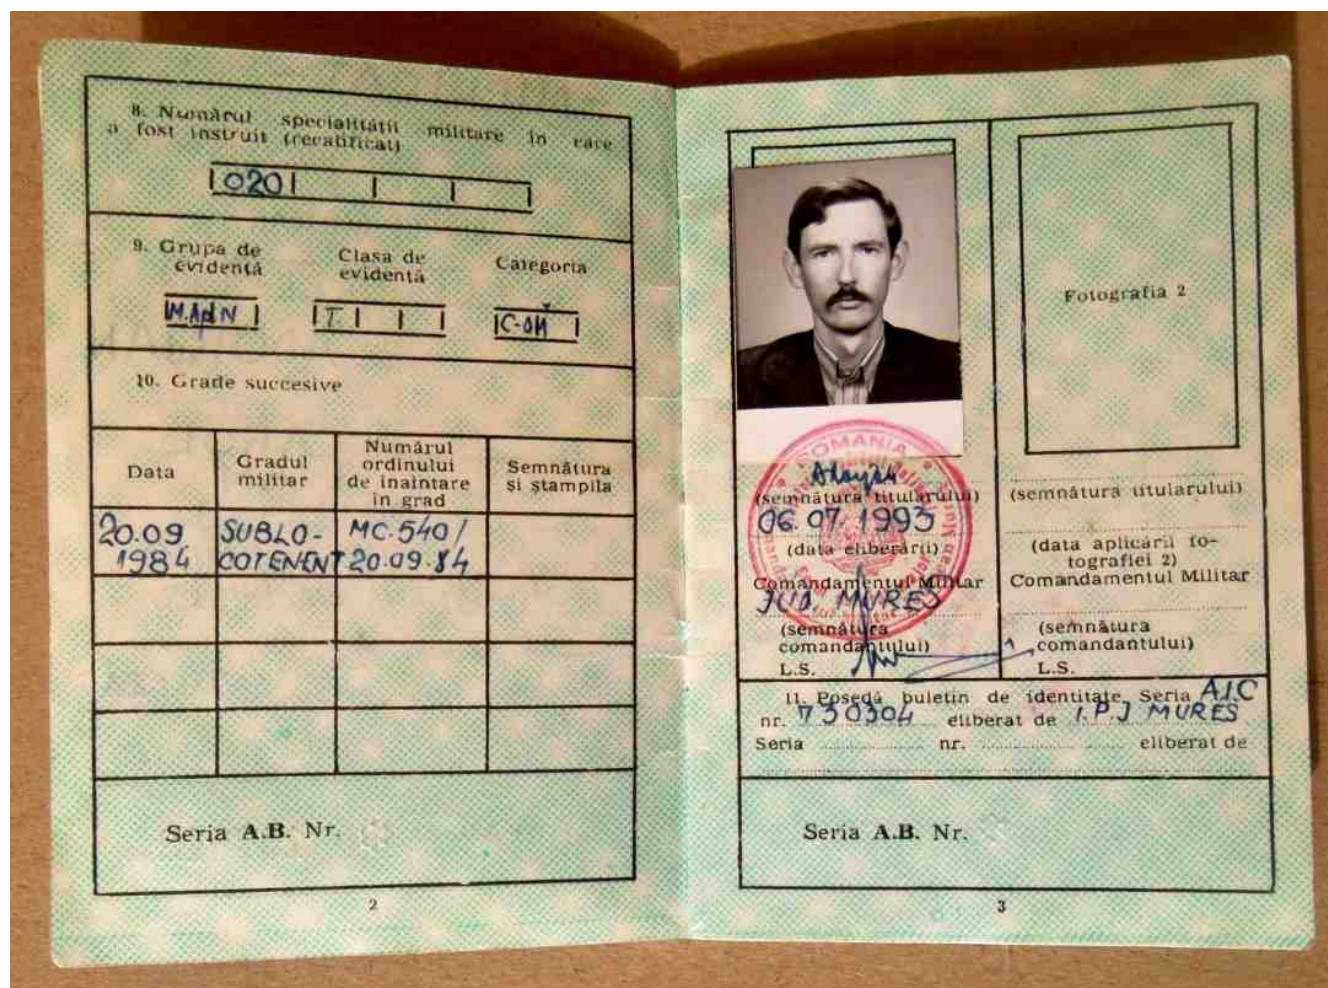 8. Numărul specialității militare în care
a fost instruit (recalificat)
020
9. Grupa de
evidență
Clasa de
evidență
Categoria
M.Ap.N
I
C-OR
10. Grade succesive
Data
Gradul
militar
Numărul
ordinului
de înaintare
în grad
Semnătura
și ștampila
20.09
1984
SUBLO-
COTENENT
MC.540/
20.09.84
Seria A.B. Nr.
2
Fotografia 2
ROMANIA
(semnătura titularului)
06.07.1993
(data eliberării)
Comandamentul Militar
JUD. MUREȘ
(semnătura
comandantului)
L.S.
(semnătura titularului)
(data aplicării fo-
tografiei 2)
Comandamentul Militar
(semnătura
comandantului)
L.S.
11. Posedă buletin de identitate Seria A.I.C
nr. 730304 eliberat de I.P.J MUREȘ
Seria nr. eliberat de
Seria A.B. Nr.
3